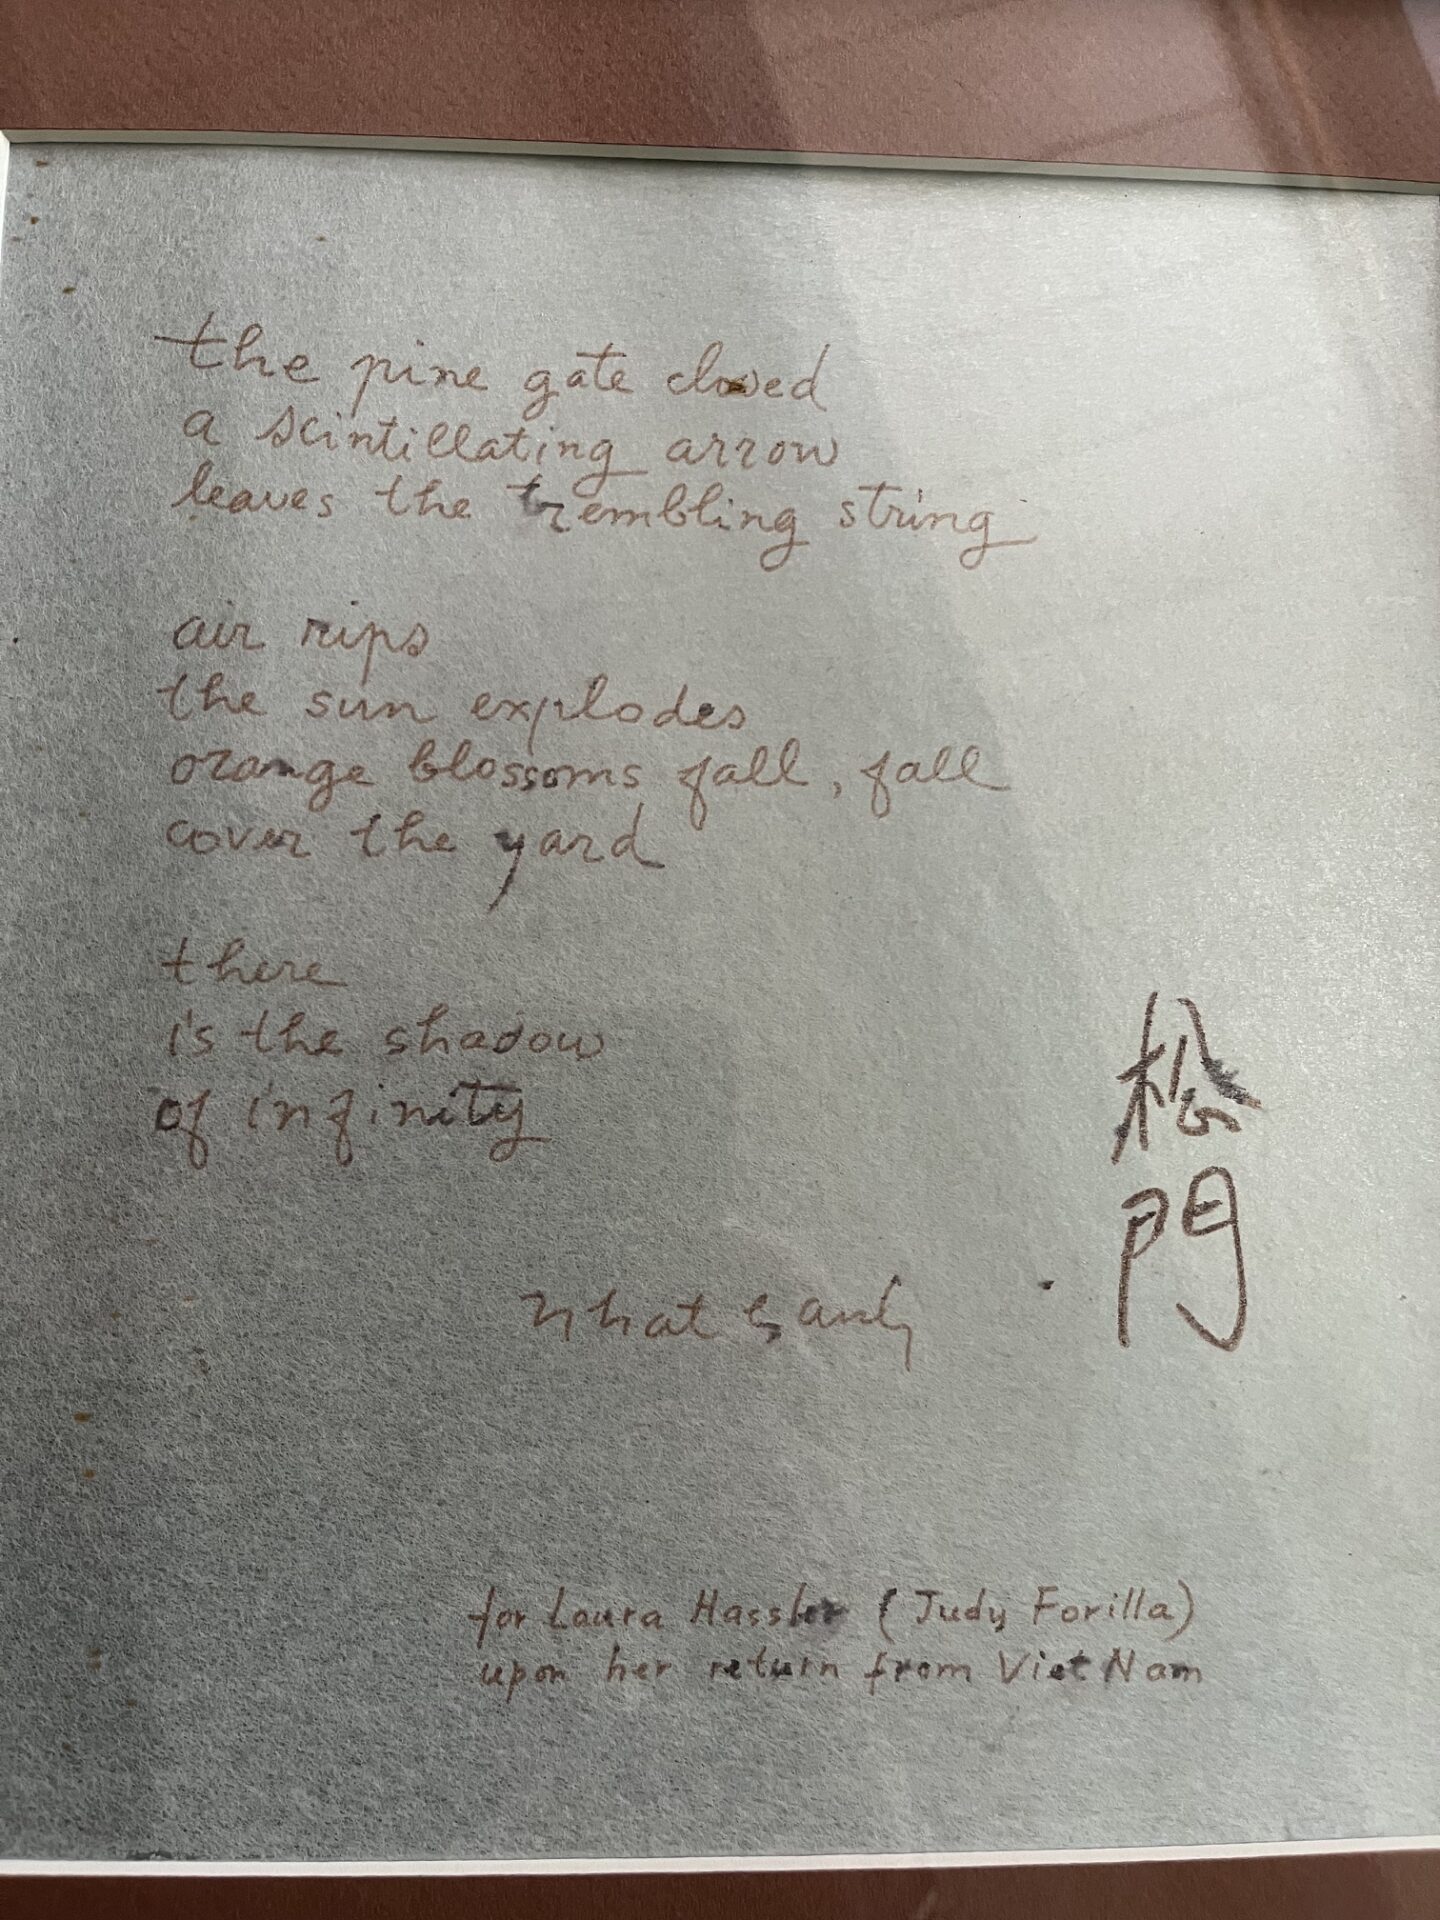 the pine gate closed
a scintillating arrow
leaves the trembling string
air rips
the sun explodes
orange blossoms fall, fall
cover the yard
there
is the shadow
of infinity
松門
nhat hanh
for Laura Hassler (Judy Forilla)
upon her return from Viet Nam